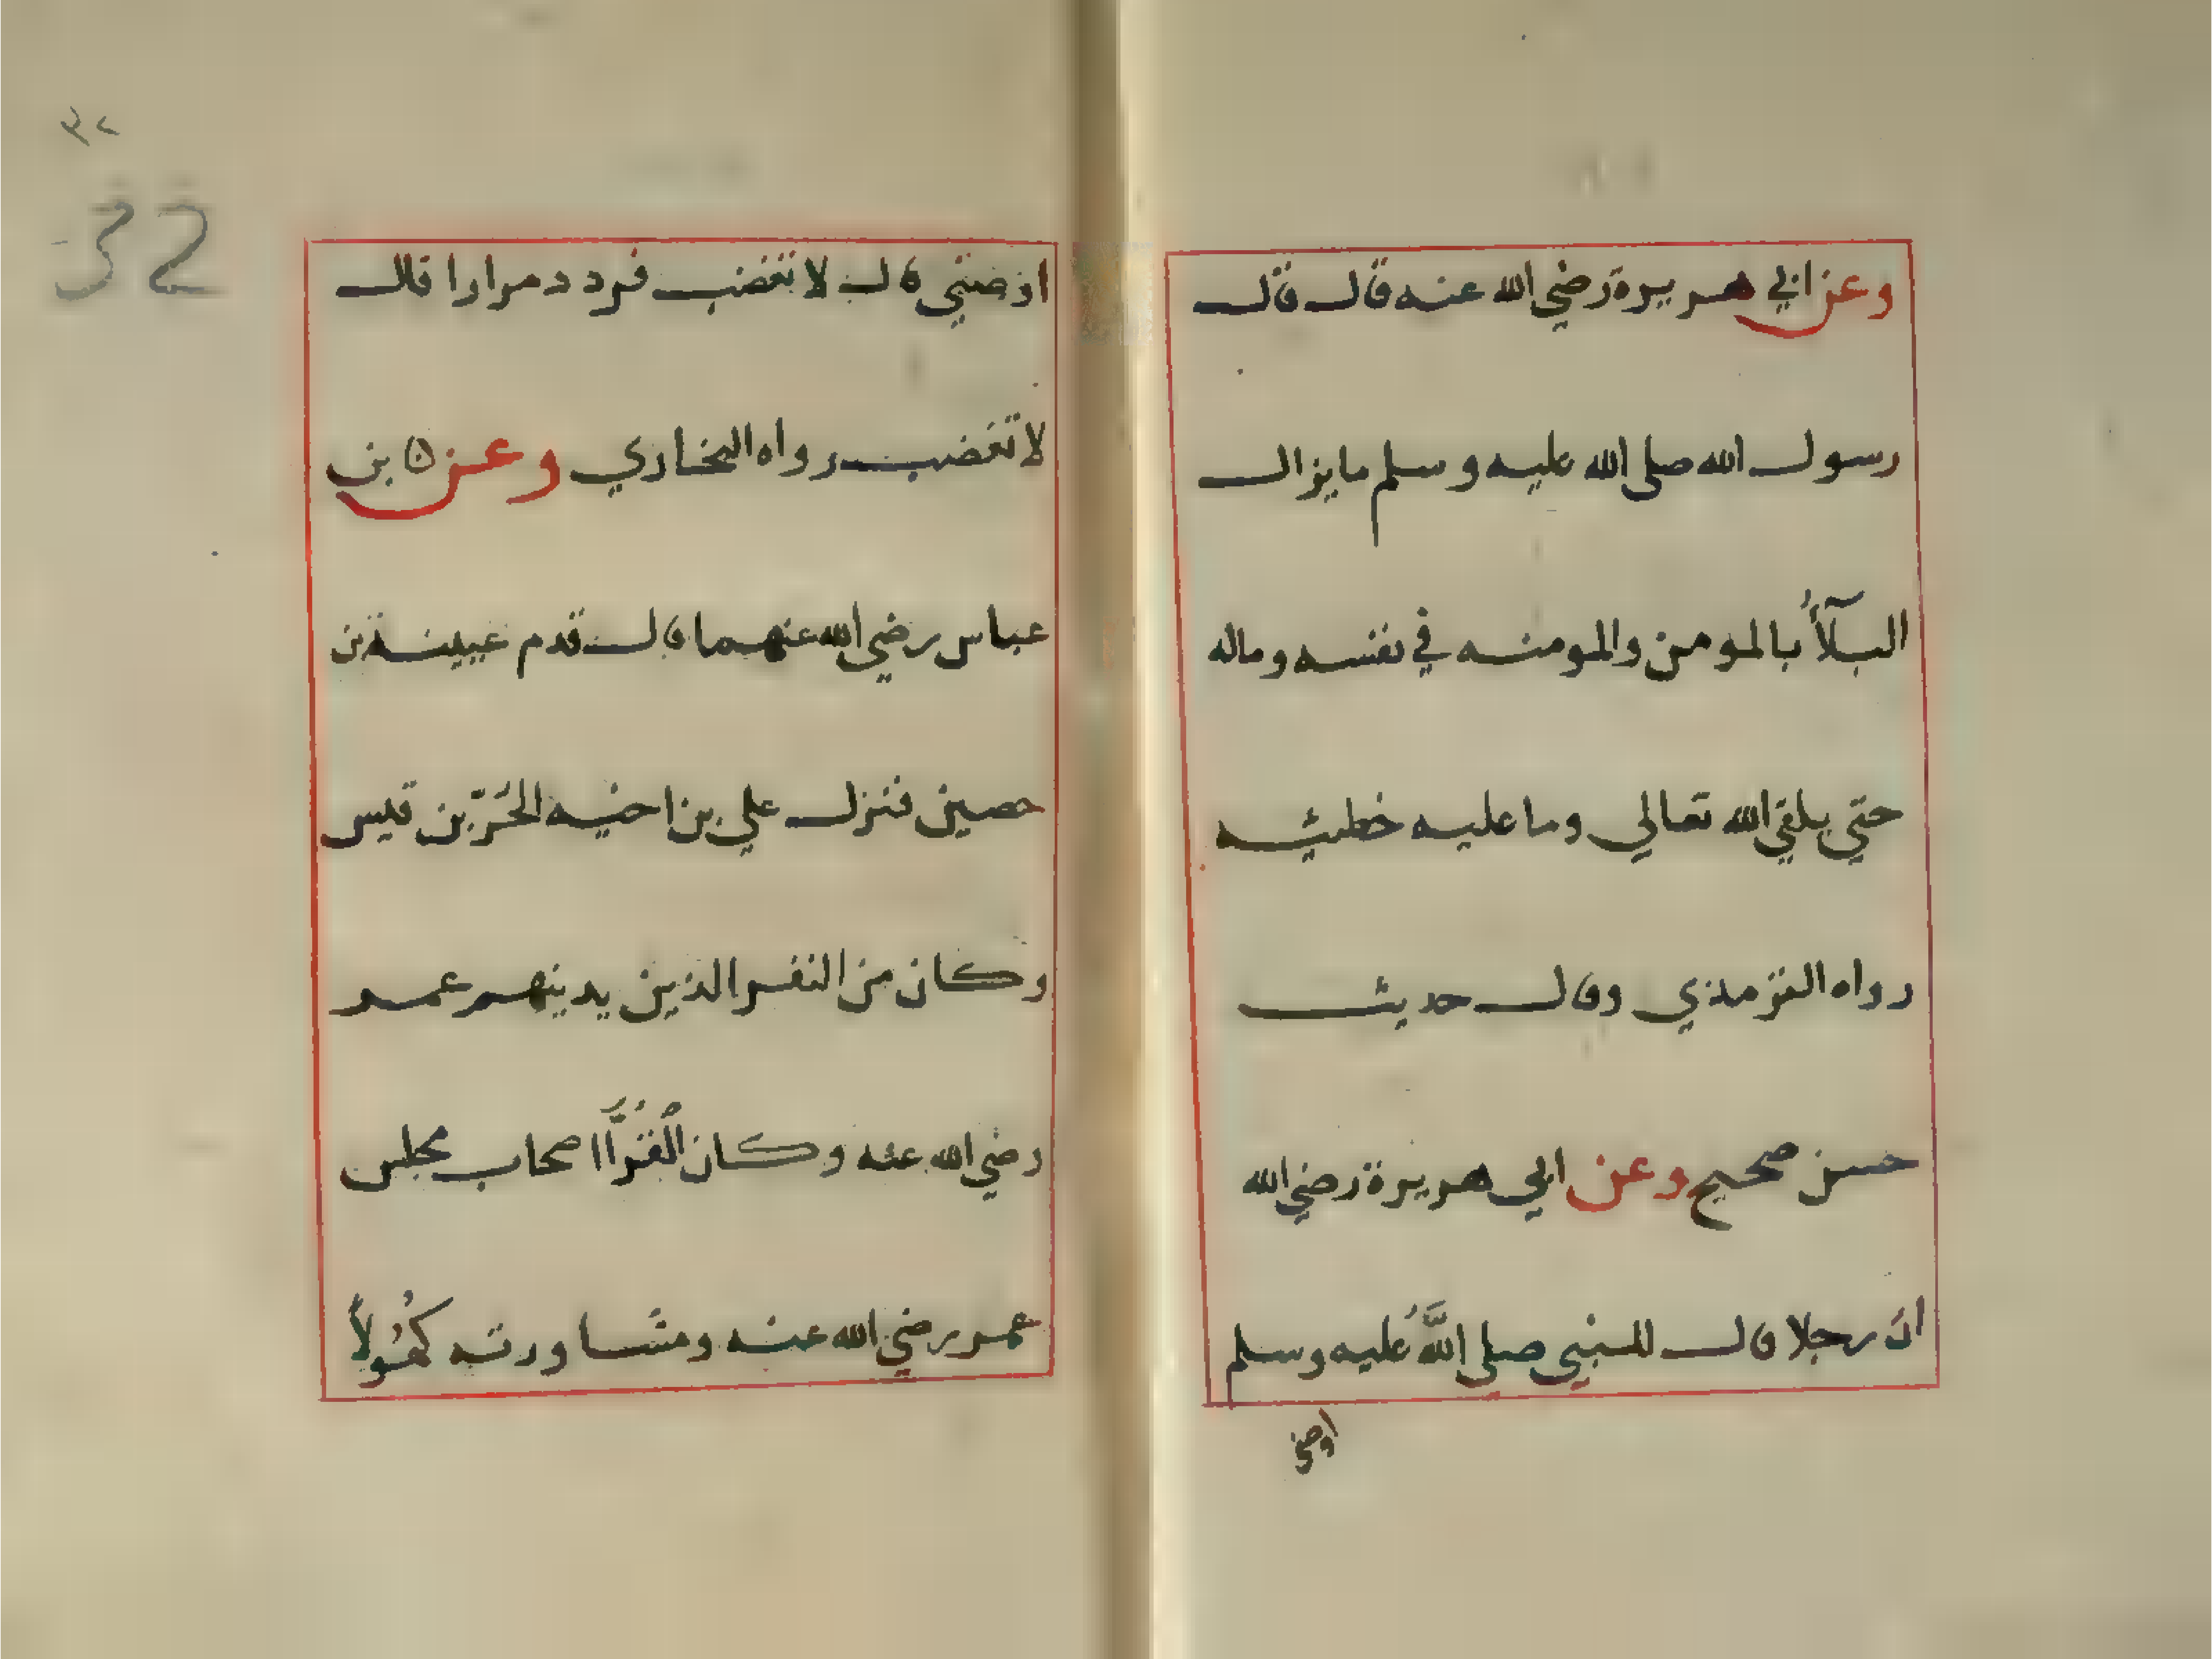 وعن ابي هريرة رضي الله عنه قال قال
رسول الله صلي الله عليه وسلم مايزال
البلآأُ بالمومن والمومنه في نفسه وماله
حتي يلقي الله تعالي وما عليه خطيئه
رواه الترمذي وقال حديث
حسن صحيح وعن ابي هريرة رضي الله
ان رجلا قال للنبي صلي اللَّهُ عليه وسلم
اوصني
٣٢
32
اوصني قال لا تغضب فردد مرارا قال
لا تغضب رواه البخاري وعن بن
عباس رضي الله عنهما قال قدم عيينة بن
حصين فنزل علي بن اخيه الحُرّ بن قيس
وكان من النفر الذين يدينهم عمر
رضي الله عنه وكان الْقُرَّاا صحاب مجلس
عمر رضي الله عنه ومشاورته كُهُولاً